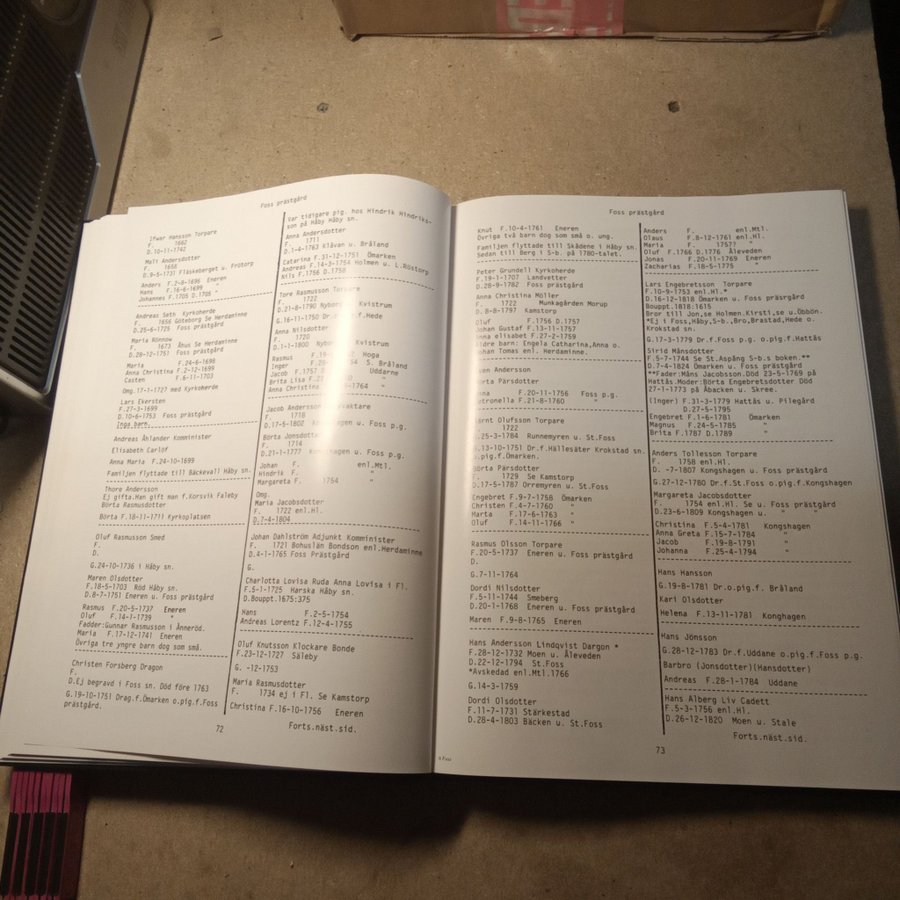 Foss prästgård
Ifwar Hansson Torpare
F. 1662
D.10-11-1742
Mali Andersdotter
F. 1658
D.9-5-1731 Fläskeberget u. Frötorp
Anders F.2-8-1696 Eneren
Hans F.16-6-1699
Johannes F.1705 D.1705 "
Andreas Seth Kyrkoherde
F. 1656 Göteborg Se Herdaminne
D.25-6-1725 Foss prästgård
Maria Rönnow
F. 1673 Åhus Se Herdaminne
D.28-12-1751 Foss prästgård
Maria F.24-6-1698
Anna Christina F.2-12-1699
Casten F.6-11-1703
Omg.17-1-1727 med Kyrkoherde
Lars Ekersten
F.27-3-1699
D.10-6-1753 Foss prästgård
Inga barn.
Andreas Ånlander Komminister
Elisabeth Carlöf
Anna Maria F.24-10-1699
Familjen flyttade till Bäckevall Håby sn.
Thore Andersson
Ej gifta.Han gift man f.Korsvik Faleby
Börta Rasmusdotter
Börta F.18-11-1711 Kyrkoplatsen
Oluf Rasmusson Smed
F.
D.
G.24-10-1736 i Håby sn.
Maren Olsdotter
F.18-5-1703 Röd Håby sn.
D.8-7-1751 Eneren u. Foss prästgård
Rasmus F.20-5-1737 Eneren
Oluf F.14-1-1739 "
Fadder:Gunnar Rasmusson i Ånneröd.
Maria F.17-12-1741 Eneren
Övriga tre yngre barn dog som små.
Christen Forsberg Dragon
F.
D.Ej begravd i Foss sn. Död före 1763
G.19-10-1751 Drag.f.Ömarken o.pig.f.Foss
prästgård.
72
Var tidigare pig. hos Hindrik Hindriks-
son på Håby Håby sn.
Anna Andersdotter
F. 1711
D.1-4-1763 Klåvan u. Bråland
Catarina F.31-12-1751 Ömarken
Andreas F.14-3-1754 Holmen u. L.Röstorp
Nils F.1756 D.1758
Tore Rasmusson Torpare
F. 1722
D.21-8-1790 Nybor Kvistrum
G.16-11-1750 Dr o.f.Hede
Anna Nilsdotter
F. 1720
D.1-1-1800 Nybo Kvistrum
Rasmus F.19- Hoga
Inger F.28- 54 S. Bråland
Jacob F.1757 D Uddane
Brita Lisa F.2 "
Anna Christina 1764 "
Jacob Andersson
F. 1718
D.17-5-1802 u. Foss p.g.
Börta Jonsdotter
F. 1714
D.21-1-1777 Kongshagen u. Foss p.g.
Johan F. enl.Mtl.
Hindrik F. "
Margareta F. 1754 "
Omg.
Maria Jacobsdotter
F. 1722 enl.Hl.
D.7-4-1804
Johan Dahlström Adjunkt Komminister
F. 1721 Bohuslän Bondson enl.Herdaminne
D.4-1-1765 Foss Prästgård
G.
Charlotta Lovisa Ruda Anna Lovisa i Fl.
F.5-1-1725 Harska Håby sn.
D.Bouppt.1675:375
Hans F.2-5-1754
Andreas Lorentz F.12-4-1755
Oluf Knutsson Klockare Bonde
F.23-12-1727 Säleby
G. -12-1753
Maria Rasmusdotter
F. 1734 ej i Fl. Se Kamstorp
Christina F.16-10-1756 Eneren
Forts.näst.sid.
Foss prästgård
Knut F.10-4-1761 Eneren
Övriga två barn dog som små o. ung.
Familjen flyttade till Skådene i Håby sn.
Sedan till Berg i S-b. på 1780-talet.
Peter Grundell Kyrkoherde
F.19-1-1707 Landvetter
D.28-9-1782 Foss prästgård
Anna Christina Möller
F. 1722 Munkagården Morup
D.8-8-1797 Kamstorp
Oluf F.1756 D.1757
Johan Gustaf F.13-11-1757
Anna elisabet F.27-2-1759
Äldre barn: Engela Catharina,Anna o.
Johan Tomas enl. Herdaminne.
Sven Andersson
Börta Pärsdotter
Anna F.20-11-1756 Foss p.g.
Petronella F.21-8-1760 "
Bärnt Olufsson Torpare
F. 1722
D.25-3-1784 Runnemyren u. St.Foss
G.13-10-1751 Dr.f.Hällesäter Krokstad sn.
o.pig.f.Ömarken.
Börta Pärsdotter
F. 1729 Se Kamstorp
D.17-5-1787 Orremyren u. St.Foss
Engebret F.9-7-1758 Ömarken
Christen F.4-7-1760 "
Marta F.17-6-1763 "
Oluf F.14-11-1766 "
Rasmus Olsson Torpare
F.20-5-1737 Eneren u. Foss prästgård
D.
G.7-11-1764
Dordi Nilsdotter
F.5-11-1744 Smeberg
D.20-1-1768 Eneren u. Foss prästgård
Maren F.9-8-1765 Eneren
Hans Andersson Lindqvist Dargon *
F.28-12-1732 Moen u. Åleveden
D.22-12-1794 St.Foss
*Avskedad enl.Mtl.1766
G.14-3-1759
Dordi Olsdotter
F.11-7-1731 Stärkestad
D.28-4-1803 Bäcken u. St.Foss
Anders F. enl.Mtl.
Olaus F.8-12-1761 enl.Hl.
Maria F. 1757? "
Oluf F.1766 D.1776 Åleveden
Jonas F.20-11-1769 Eneren
Zacharias F.18-5-1775
Lars Engebretsson Torpare
F.10-9-1753 enl.Hl.*
D.16-12-1818 Ömarken u. Foss präsrgård
Bouppt.1818:1615
Bror till Jon,se Holmen.Kirsti,se u.Öbbön.
*Ej i Foss,Håby,S-b.,Bro,Brastad,Hede o.
Krokstad sn.
G.17-3-1779 Dr.f.Foss p.g. o.pig.f.Hattås
Sirid Månsdotter
F.5-7-1744 Se St.Aspång S-b.s boken.**
D.7-4-1824 Ömarken u. Foss prästgård
**Fader:Måns Jacobsson.Död 23-5-1769 på
Hattås.Moder:Börta Engebretsdotter Död
27-1-1773 på Åbacken u. Skree.
(Inger) F.31-3-1779 Hattås u. Pilegård
D.27-5-1795
Engebret F.1-6-1781 Ömarken
Magnus F.24-5-1785 "
Brita F.1787 D.1789 "
Anders Tollesson Torpare
F. 1758 enl.Hl.
D. -7-1807 Kongshagen u. Foss prästgård
G.27-12-1780 Dr.f.St.Foss o.pig.f.Kongshagen
Margareta Jacobsdotter
F. 1754 enl.Hl. Se u. Foss prästgård
D.23-6-1809 Kongshagen u. " "
Christina F.5-4-1781 Kongshagen
Anna Greta F.15-7-1784 "
Jacob F.19-8-1791 "
Johanna F.25-4-1794 "
Hans Hansson
G.19-8-1781 Dr.o.pig.f. Bråland
Kari Olsdotter
Helena F.13-11-1781 Konghagen
Hans Jönsson
G.28-12-1783 Dr.f.Uddane o.pig.f.Foss p.g.
Barbro (Jonsdotter)(Hansdotter)
Andreas F.28-1-1784 Uddane
Hans Alberg Liv Cadett
F.5-3-1756 enl.Hl.
D.26-12-1820 Moen u. Stale
Forts.näst.sid.
73